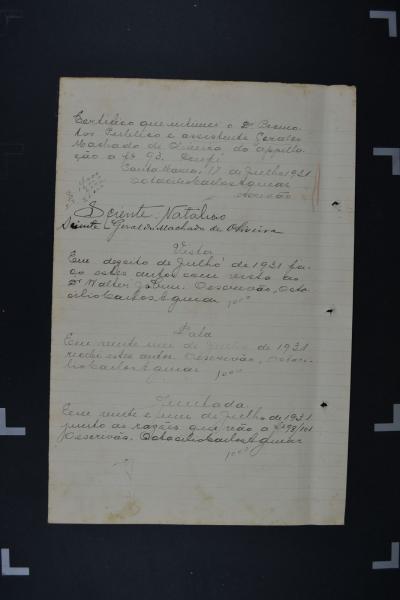 Certifico que intimei o Dr. Promo-
tor Publico e assistente Geraldo
Machado de Oliveira da appella-
ção a fls 93. Dou fé
Santa Maria, 17 de Julho 1931
Octacilio Carlos Aguiar
escrivão
Sciente. Natalicio
Sciente Geraldo Machado de Oliveira
Vista
Em dezoito de Julho de 1931 fa-
ço estes autos com vista ao
Dr Walter Jobim. O escrivão, Octa-
cilio Carlos Aguiar
1000
Data
Em vinte um de Julho de 1931
recebi estes autos. O escrivão, Octaci-
lio Carlos Aguiar
1000
Juntada
Em vinte e um de Julho de 1931
junto as razões que vão a fls 98/101
O escrivão. Octacilio Carlos Aguiar
1000